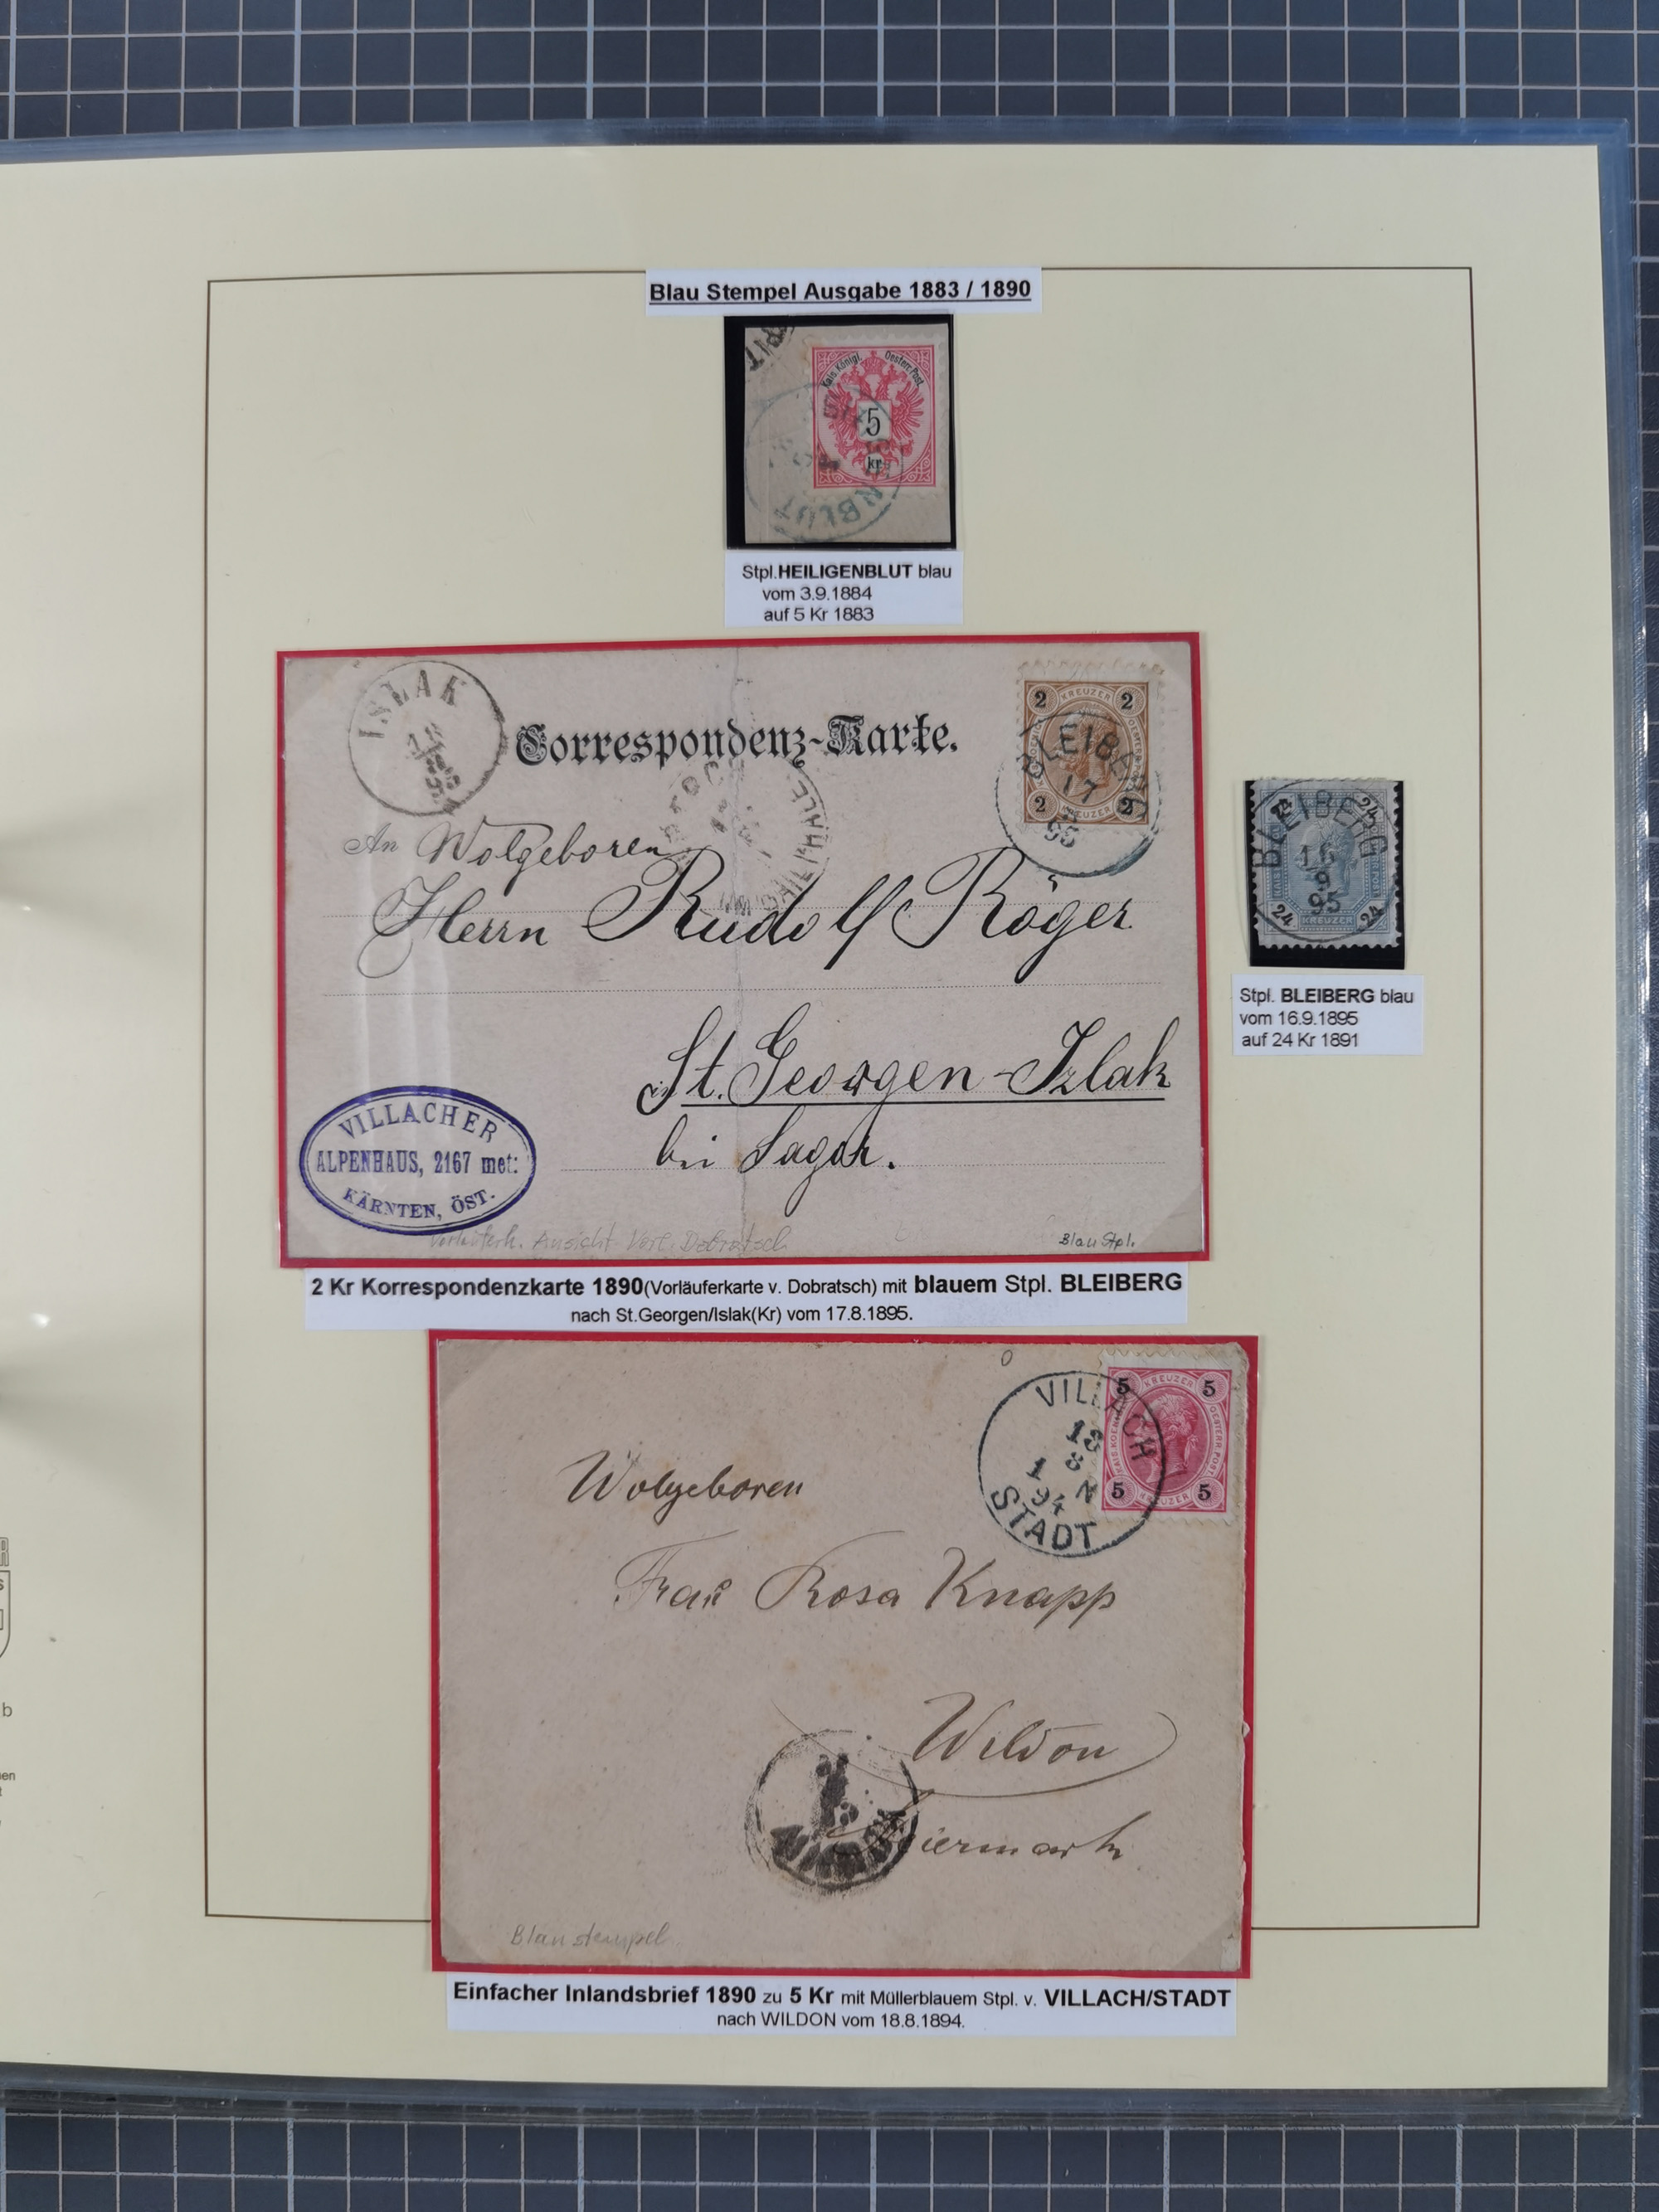 Blau Stempel Ausgabe 1883 / 1890
Kais. Königl. Oesterr. Post.
5
kr.
NBLUT
Stpl.HEILIGENBLUT blau
vom 3.9.1884
auf 5 Kr 1883
ISLAK
Correspondenz-Karte.
2 KREUZER 2
2 KREUZER 2
BLEIBERG
17
95
An Wolgeboren
Herrn Rudolf Röger
St. Georgen-Izlak
bei Sagor.
VILLACHER
ALPENHAUS, 2167 met:
KÄRNTEN, ÖST.
Vorläuferk. Ansicht Dobratsch
Blau Stpl.
24 24
BLEIBERG
16
9
95
24 KREUZER 24
Stpl. BLEIBERG blau
vom 16.9.1895
auf 24 Kr 1891
2 Kr Korrespondenzkarte 1890(Vorläuferkarte v. Dobratsch) mit blauem Stpl. BLEIBERG
nach St.Georgen/Islak(Kr) vom 17.8.1895.
5 KREUZER 5
OESTERR. POST.
5 KREUZER 5
VILLACH
18
8
1 N
94
STADT
Wolgeboren
Frau Rosa Knapp
Wildon
Steiermark
Blaustempel
Einfacher Inlandsbrief 1890 zu 5 Kr mit Müllerblauem Stpl. v. VILLACH/STADT
nach WILDON vom 18.8.1894.
b